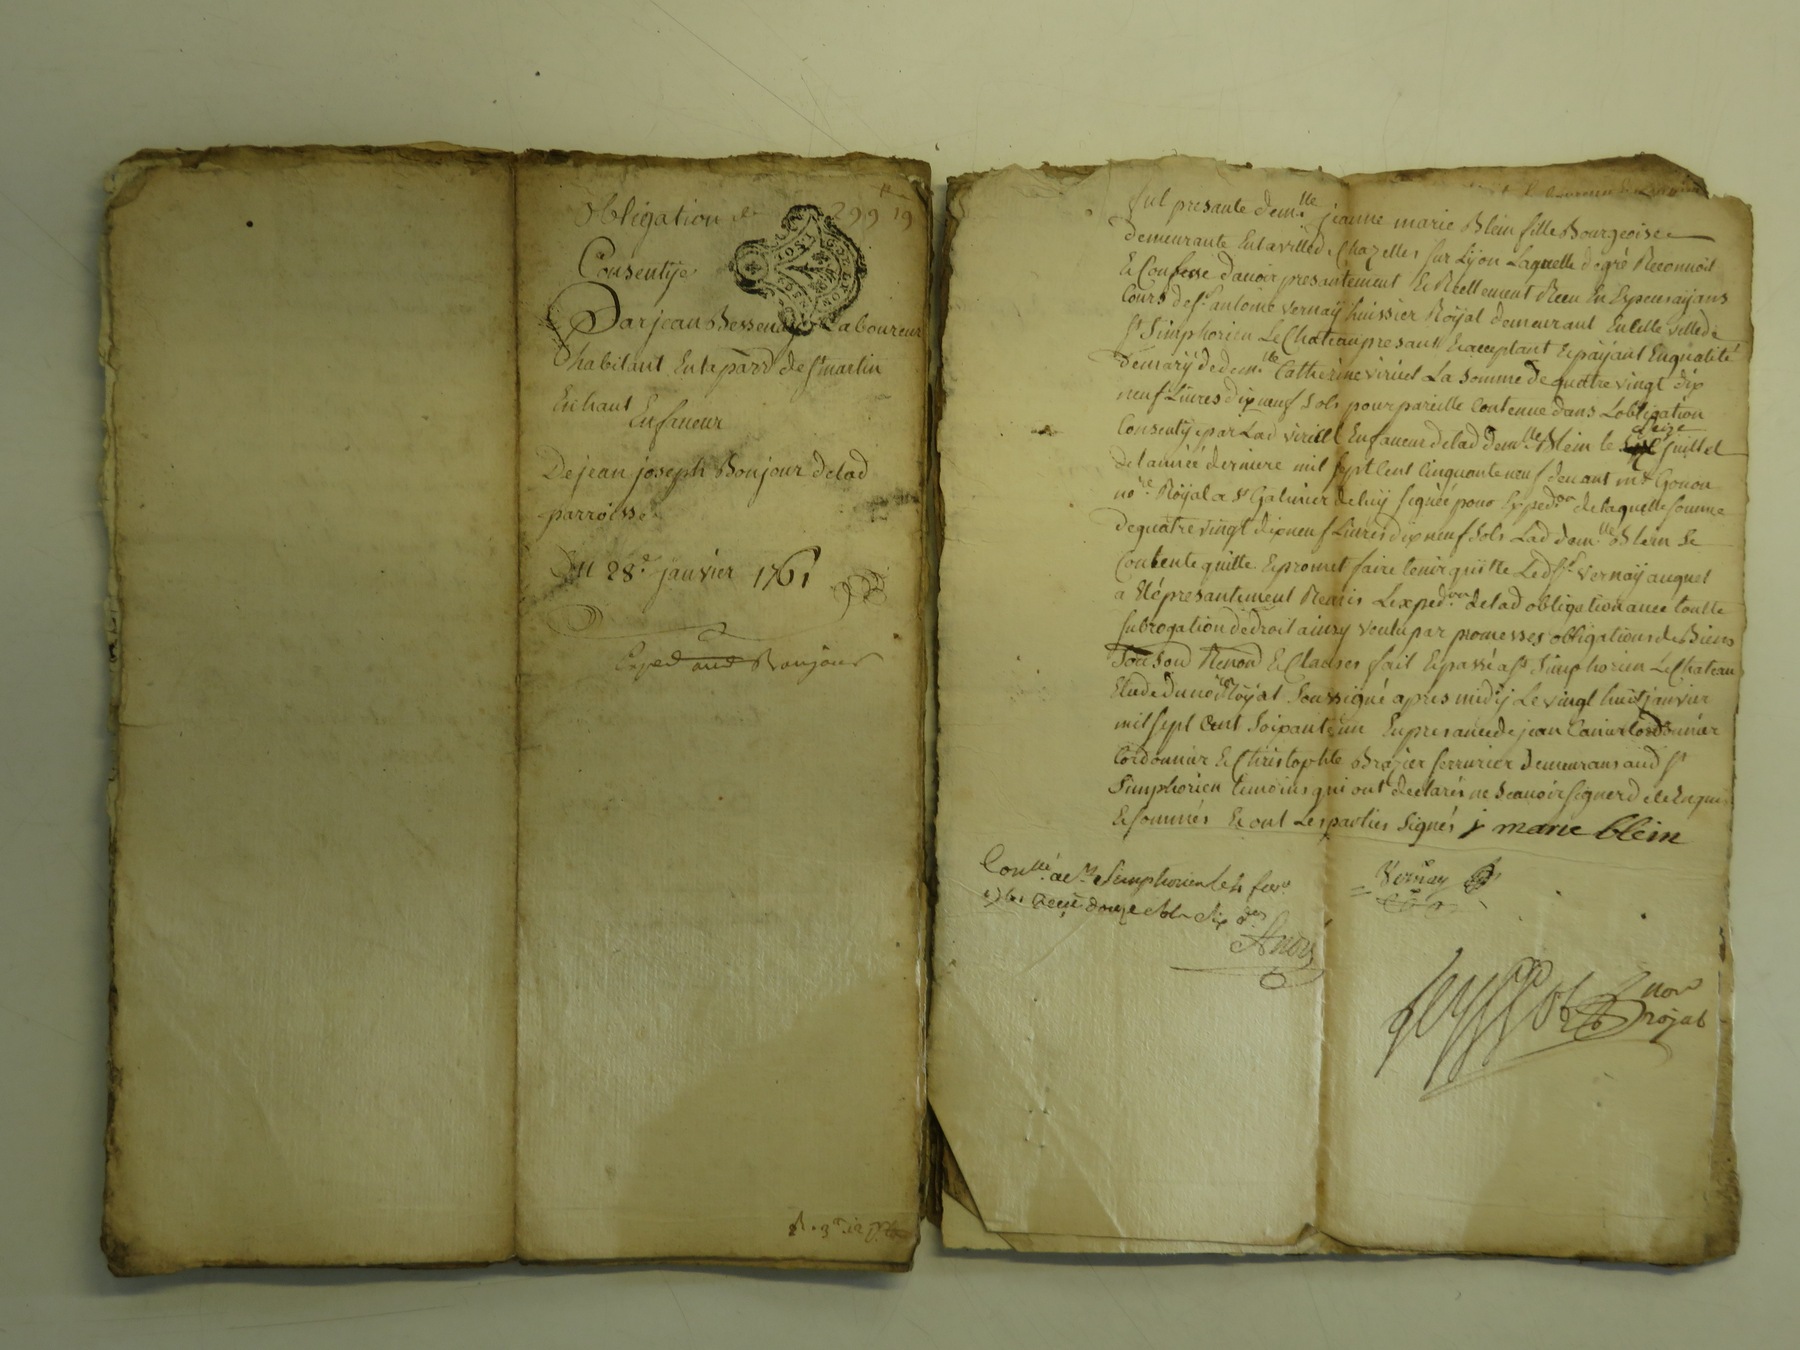 Obligation de 299 19
Consentye
Par jean Bessenay Laboureur
habitant En la parr.d de st martin
En haut
Enfaueur
De jean joseph Bonjour de lad
parroisse
Du 28.e janvier 1761
Exped aud Bonjour
fut presante dem.lle jeanne marie Blein fille Bourgeoise
demeurante En la ville de Chazelles sur Lyon Laquelle de gré Reconnoit
& Confesse d'auoir presantement & Réellement Receu En Especes ayans
Cours de s.r antoine vernay huissier Royal demeurant En cette ville de
s.t Simphorien Le Chateau present & acceptant & payant En qualité
De mary de dem.lle Catherine viricel La somme de quatre vingt dix
neuf Liures dix neuf sols pour pareille Contenue dans L'obligation
Consentye par Lad viricel En faueur de lad dem.lle Blein le seize juillet
de l'année derniere mil sept Cent Cinquante neuf deuant m.e Gonon
no.re Royal a s.t Galmier de luy signée pour Exped.on de laquelle somme
de quatre vingt dix neuf Liures dix neuf sols Lad dem.lle Blein se
Contente quitte & promet faire tenir quitte Led s.r vernay auquel
a Eté presantement Remis L'exped.on de lad obligation auec toutte
subrogation de droit ainsy voulu par promesses obligations de Biens
Renond & Clauses fait & passé a s.t Simphorien Le Chateau
Etude du no.re Royal soussigné apres midy Le vingt huit janvier
mil sept Cent soixante un En presance de jean Cordonnier
Cordonnier & Christophle Brazier serrurier demeurans aud s.t
Simphorien temoins qui ont declarés ne scauoir signer de ce Enquis
& sommés & ont Les parties signés j marie blein
Con.llé a s.t Simphorien le fevr
1761 Receu douze sols six d.ers
Vernay
no.re
royal